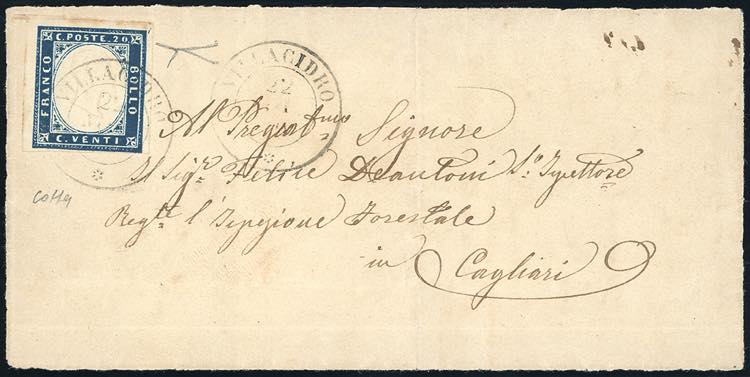 C. POSTE. 20
FRANCO
BOLLO
C. VENTI
VILLACIDRO
2
VILLACIDRO
22
Al Pregiat.mo Signore
Il Sig.r Felice Deantoni S. Ispettore
Reg. l'Ispezione Forestale
in Cagliari